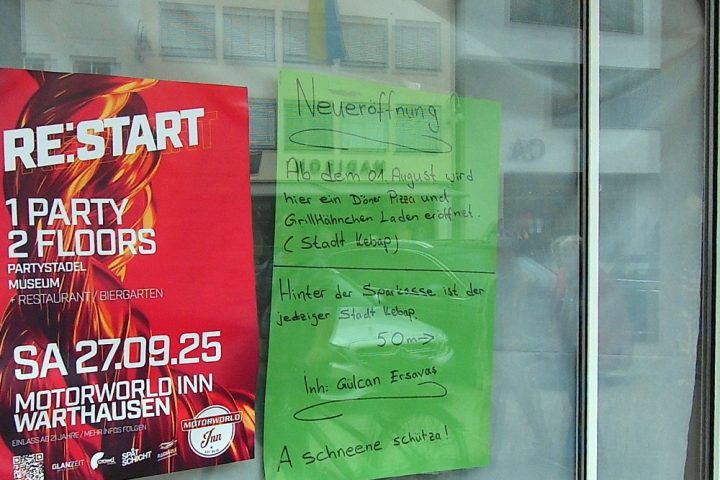 RE:START
1 PARTY
2 FLOORS
PARTYSTADEL
MUSEUM
+ RESTAURANT / BIERGARTEN
SA 27.09.25
MOTORWORLD INN
WARTHAUSEN
EINLASS AB 21 JAHRE / MEHR INFOS FOLGEN
MOTORWORLD
Inn
GLANZEIT
SPÄT
SCHICHT
Neueröffnung
Ab dem 01 August wird
hier ein Döner Pizza und
GrillHähnchen Laden eröffnet.
(Stadt Kebap)
Hinter der Sparkasse ist der
jedziger Stadt Kebap.
50m→
Inh: Gülcan Ersavas
A schneene schütza!